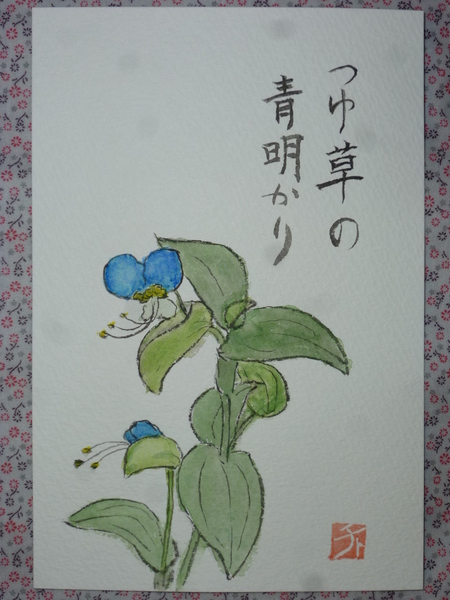 つゆ草の
青明かり